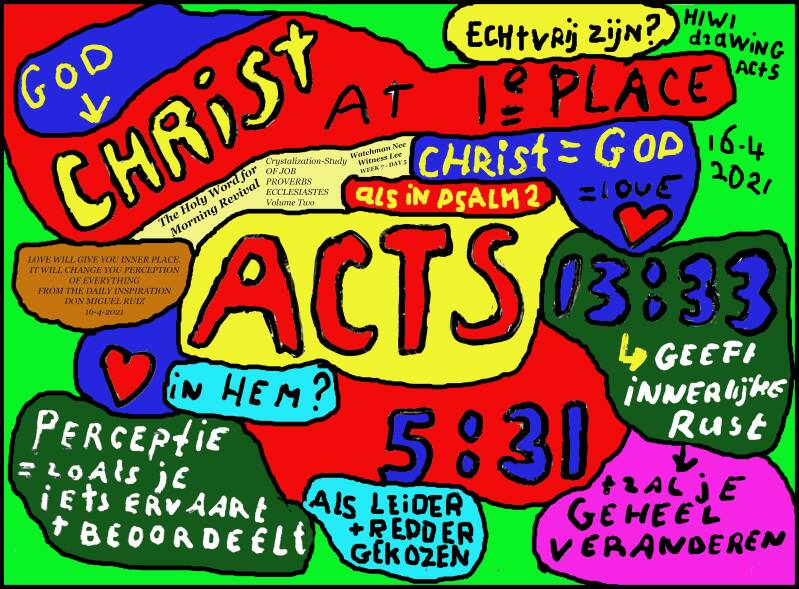 ECHT VRIJ ZIJN?
HIWI
drawING
ACTS
16-4
2021
GOD
CHRIST
AT 1e PLACE
CHRIST = GOD
= LOVE
als in PSALM 2
The Holy Word for
Morning Revival
Crystalization-Study
OF JOB
PROVERBS
ECCLESIASTES
Volume Two
Watchman Nee
Witness Lee
WEEK 7 - DAY 5
LOVE WILL GIVE YOU INNER PLACE.
IT WILL CHANGE YOU PERCEPTION
OF EVERYTHING
FROM THE DAILY INSPIRATION
DON MIGUEL RUIZ
16-4-2021
ACTS
13:33
GEEFT
iNNERlijKE
RUST
in HEM?
5:31
PERCEPTIE
= ZOALS JE
iETS ERVAART
+ BEOORDEELT
ALS LEiDER
+ REDDER
GEKOZEN
+ ZAL JE
GEHEEL
VERANDEREN